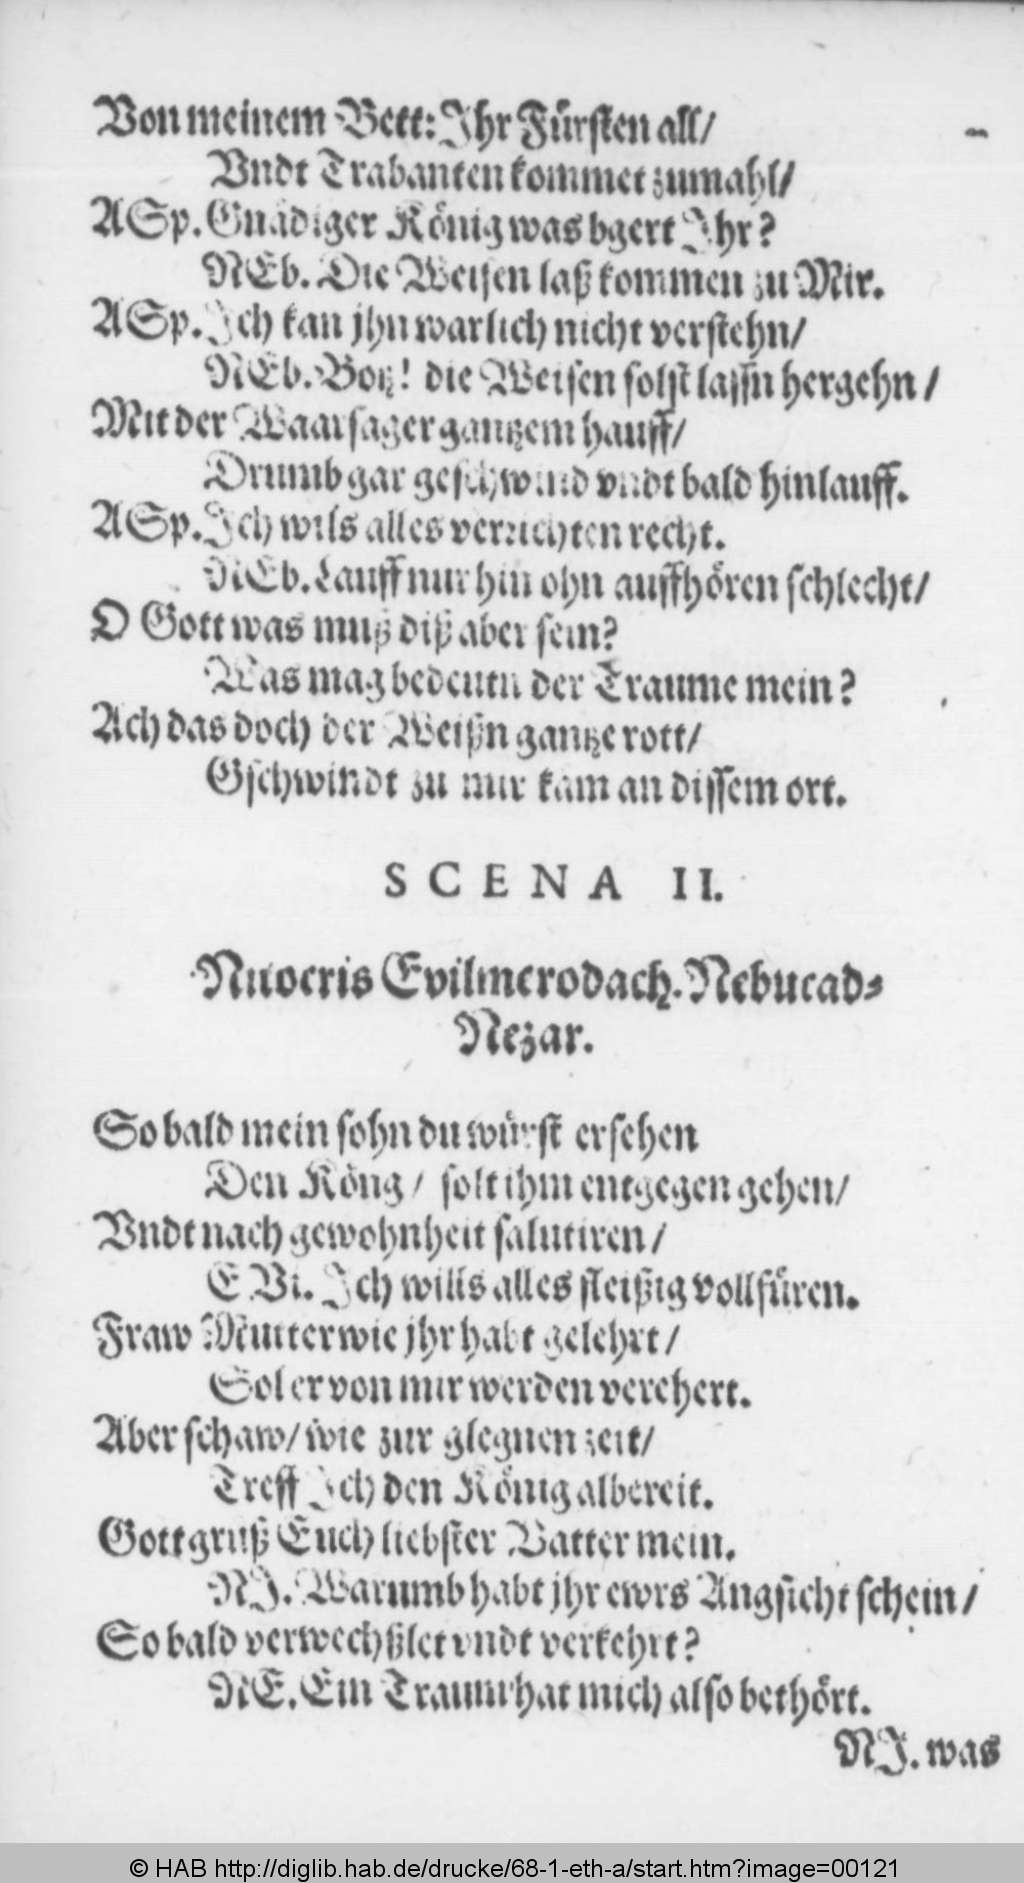 Von meinem Bett: Ihr Fürsten all/
Vndt Trabanten kommet zumahl/
ASp. Gnädiger König was bgert Ihr?
NEb. Die Weisen laß kommen zu Mir.
ASp. Ich kan jhn warlich nicht verstehn/
NEb. Botz! die Weisen solst lassn hergehn/
Mit der Waarsager gantzem hauff/
Drumb gar geschwind vndt bald hinlauff.
ASp. Ich wils alles verrichten recht.
NEb. Lauff nur hin ohn auffhören schlecht/
O Gott was muß diß aber sein?
Was mag bedeutn der Traume mein?
Ach das doch der Weißn gantze rott/
Gschwindt zu mir kam an dissem ort.
SCENA II.
Nitocris Evilmerodach. Nebucad-
Nezar.
So bald mein sohn du würst ersehen
Den Köng/ solt ihm entgegen gehen/
Vndt nach gewohnheit salutiren/
EVi. Ich wills alles fleißig vollfüren.
Fraw Mutter wie jhr habt gelehrt/
Sol er von mir werden verehert.
Aber schaw/ wie zur glegnen zeit/
Treff Ich den König albereit.
Gott gruß Euch liebster Vatter mein.
NI. Warumb habt jhr ewrs Angsicht schein/
So bald verwechßlet vndt verkehrt?
NE. Ein Traum hat mich also bethört.
NI. was
© HAB http://diglib.hab.de/drucke/68-1-eth-a/start.htm?image=00121